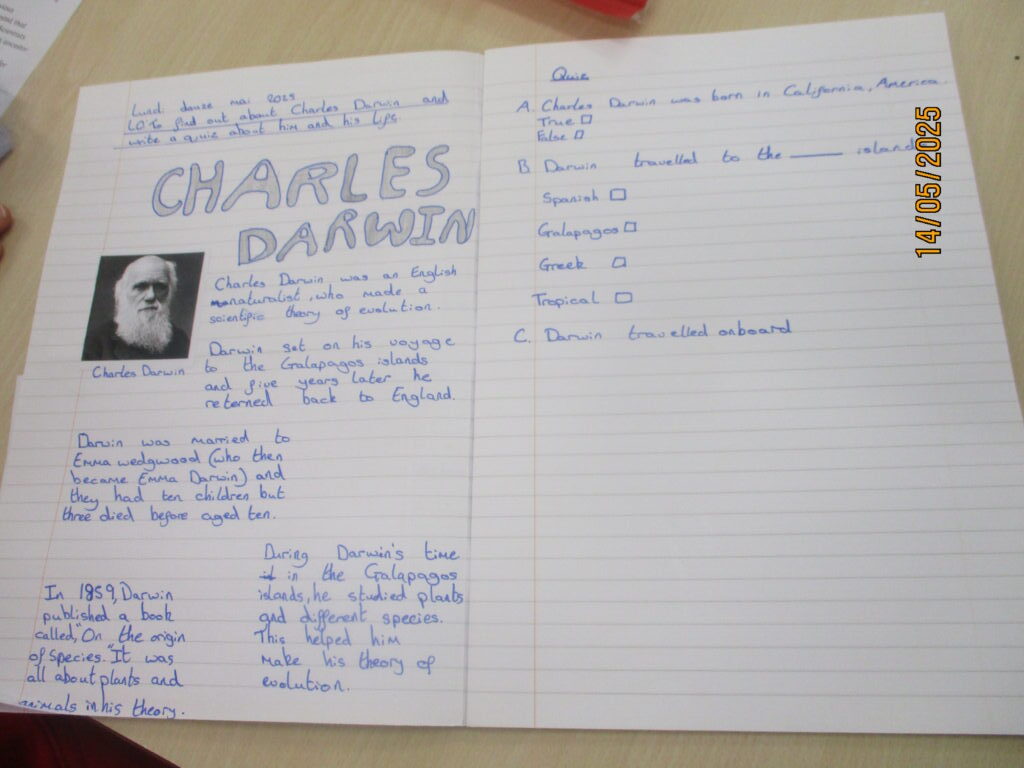 Lundi douze mai 2025
LO To find out about Charles Darwin and
write a quiz about him and his life.
CHARLES
DARWIN
Charles Darwin was an English
naturalist, who made a
scientific theory of evolution.
Darwin set on his voyage
to the Galapagos islands
and five years later he
returned back to England.
Charles Darwin
Darwin was married to
Emma wedgwood (who then
became Emma Darwin) and
they had ten children but
three died before aged ten.
In 1859, Darwin
published a book
called, "On the origin
of species." It was
all about plants and
animals in his theory.
During Darwin's time
in the Galapagos
islands, he studied plants
and different species.
This helped him
make his theory of
evolution.
Quiz
A. Charles Darwin was born in California, America.
True
False
B Darwin travelled to the ____ island
Spanish
Galapagos
Greek
Tropical
C. Darwin travelled onboard
14/05/2025